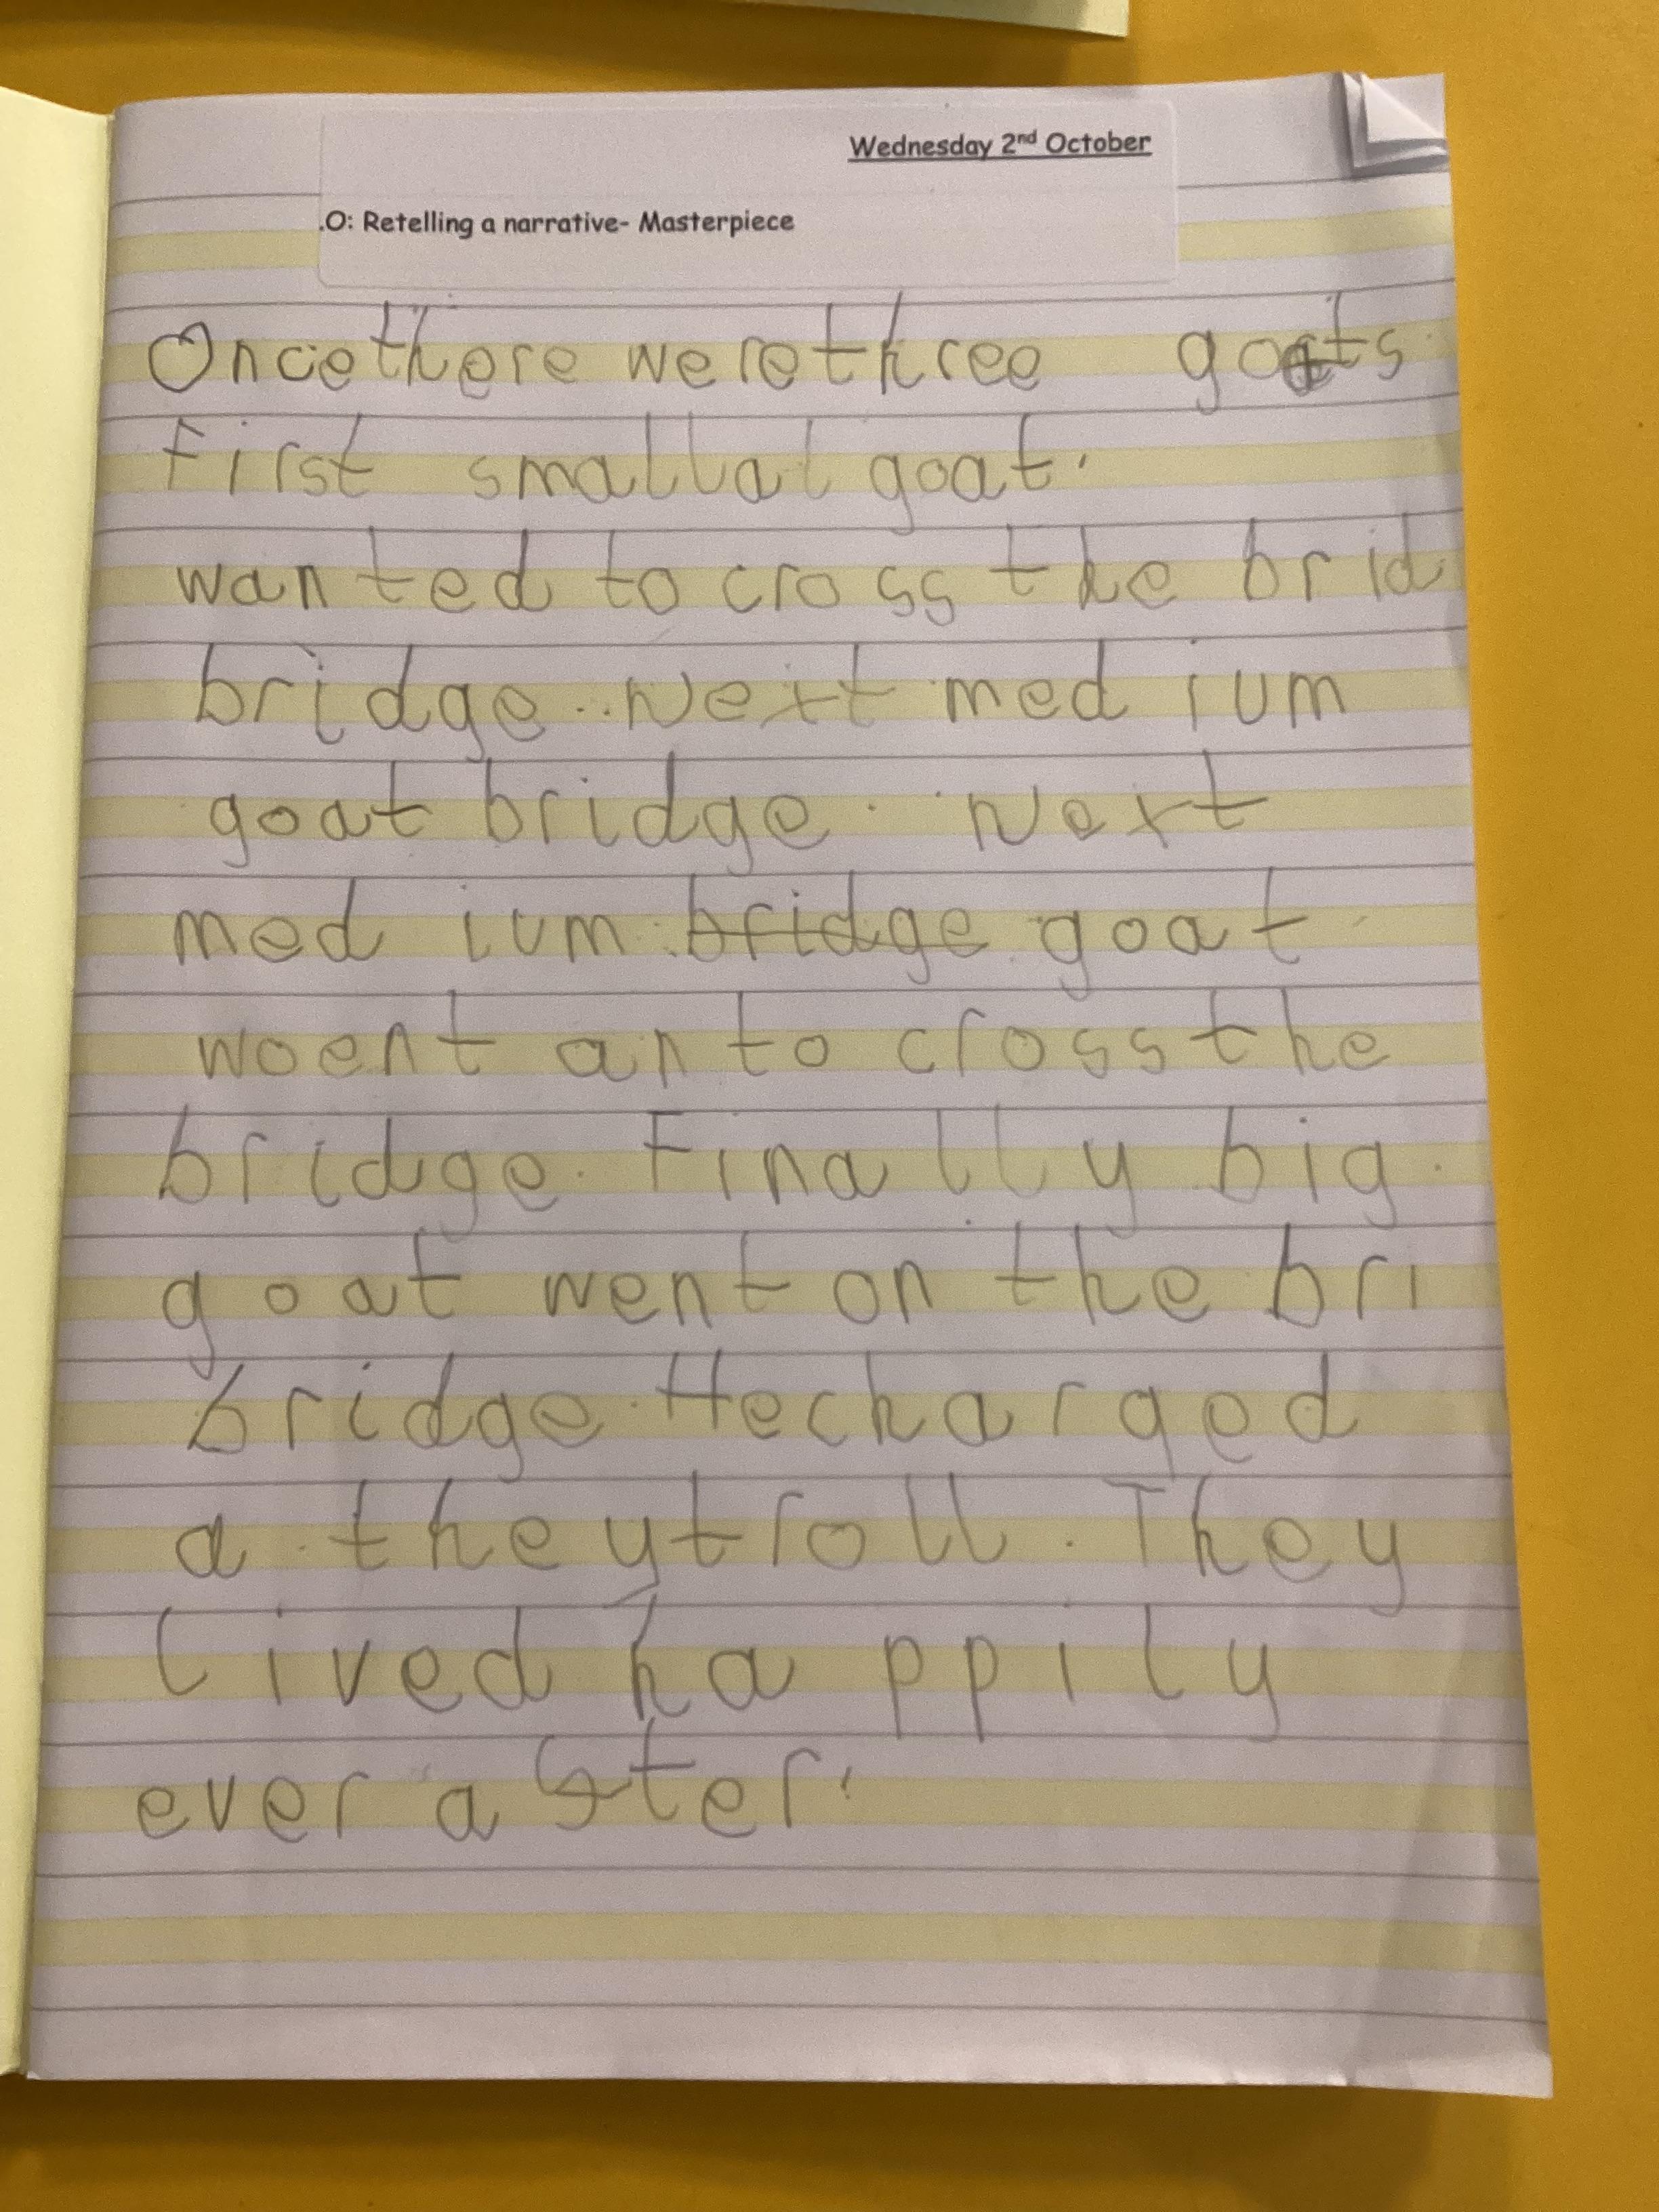 Wednesday 2nd October
.O: Retelling a narrative- Masterpiece
Once there were three goats.
First smallal goat.
wanted to cross the brid
bridge. Next med ium
goat bridge. Next
med ium bridge goat
woent an to cross the
bridge. Finally big.
goat went on the bri
bridge. He charged
a they troll. They
lived happily
ever after.